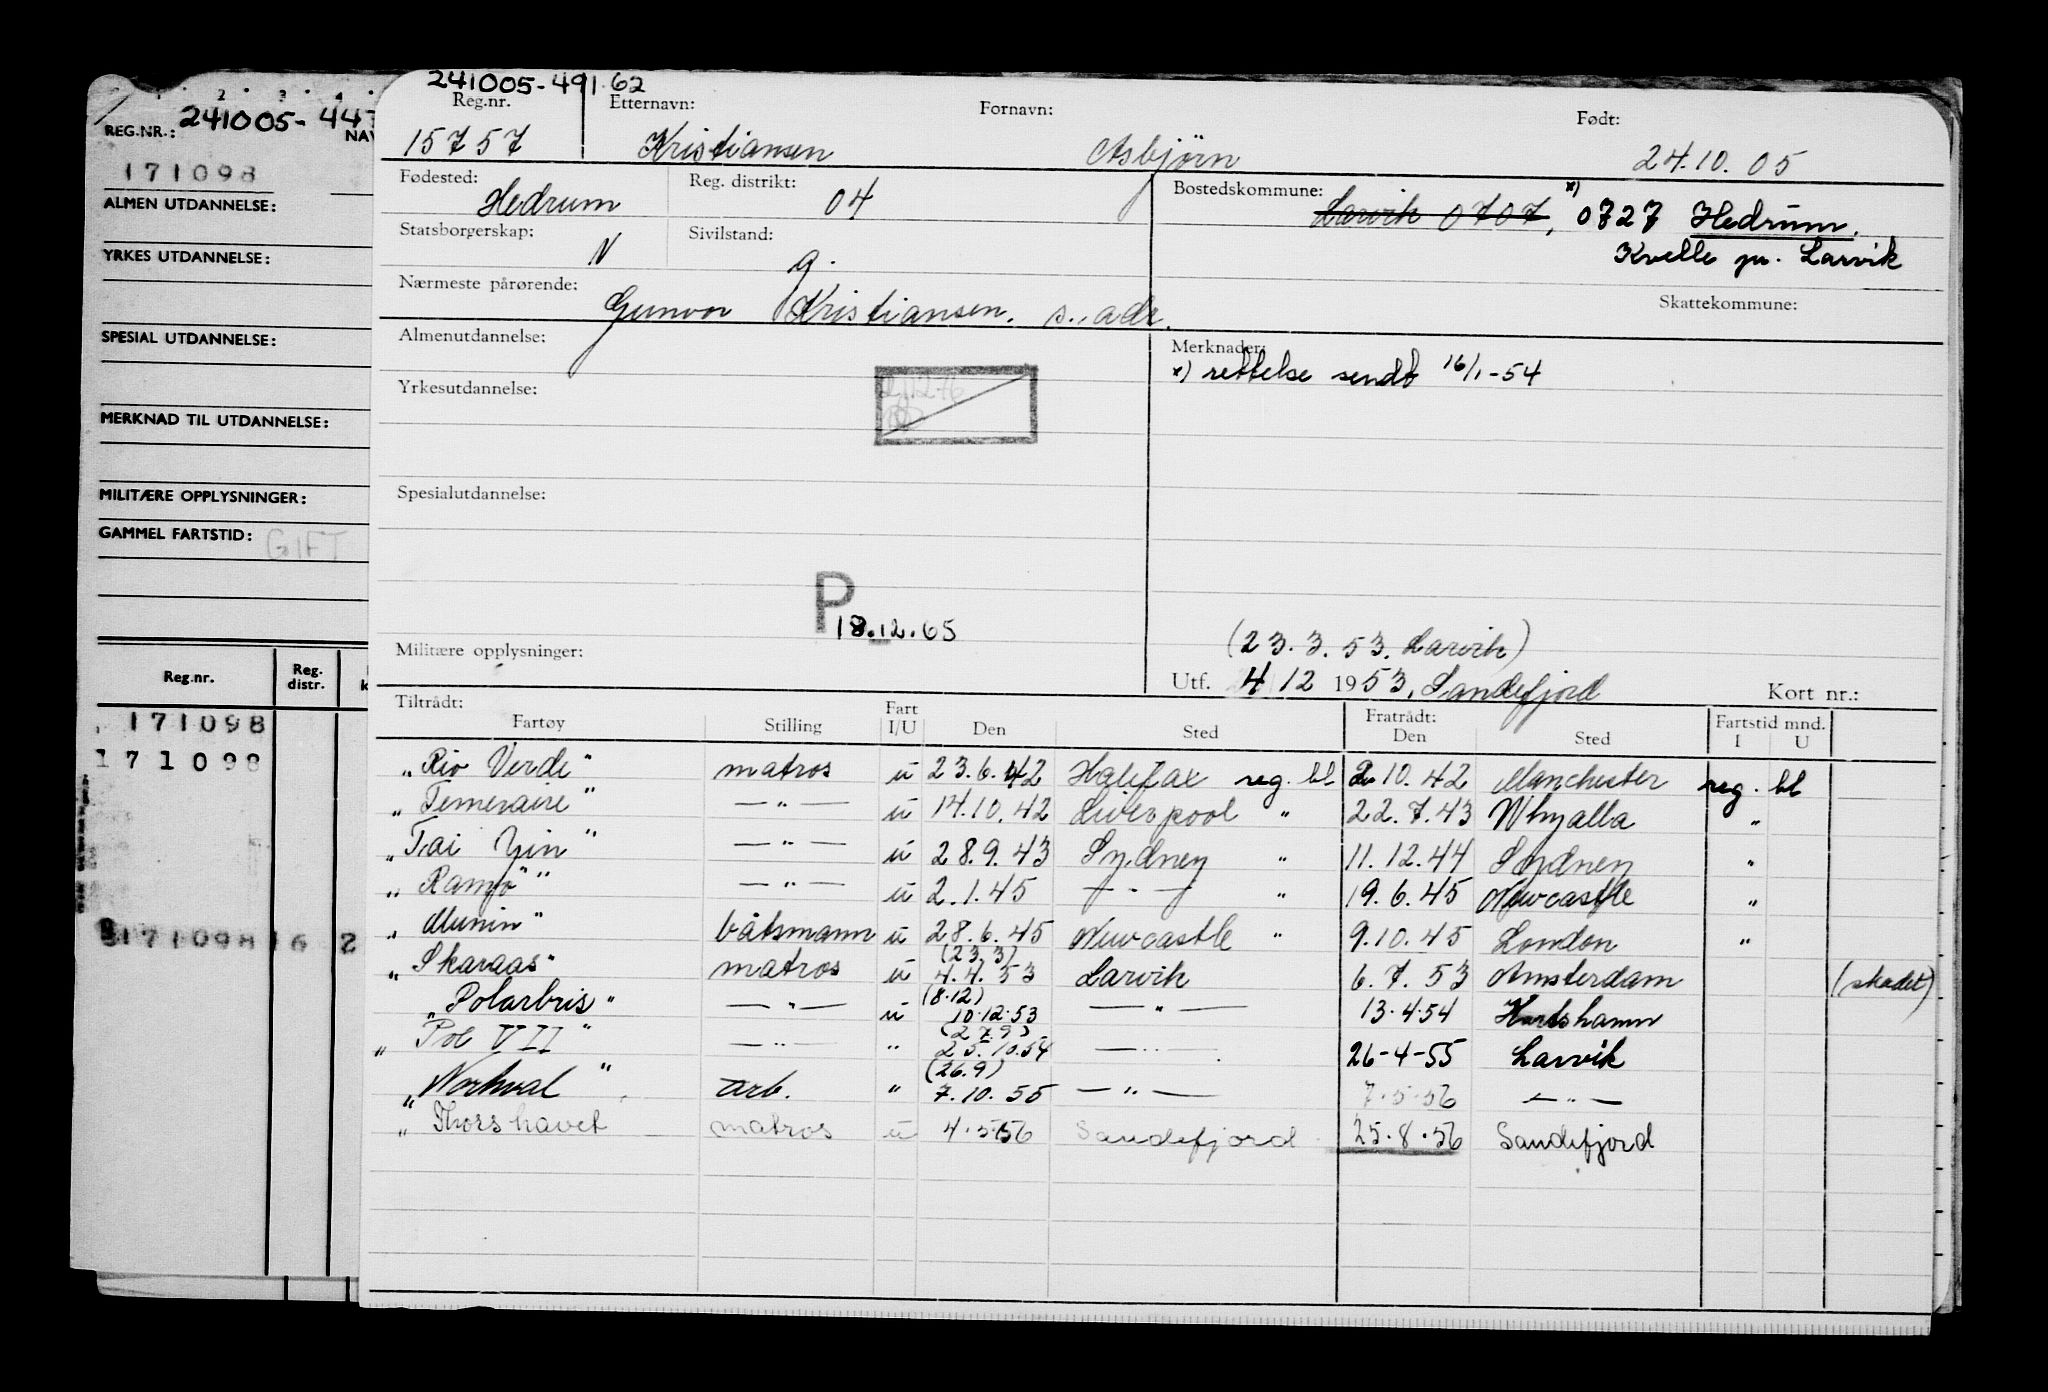 241005-491.62
Reg.nr. Etternavn: Fornavn: Født:
15757 Kristiansen Asbjörn 24.10.05
Fødested: Hedrum Reg. distrikt: 04 Bostedskommune: Larvik 0707, *) 0727 Hedrum.
Statsborgerskap: N Sivilstand: g. Kvelle pr. Larvik
Nærmeste pårørende: Gunvor Kristiansen. s. adr. Skattekommune:
Almenutdannelse: Merknader:
*) rettelse sendt 16/1-54
Yrkesutdannelse:
Spesialutdannelse:
P
18.12.65
Militære opplysninger: (23.3.53. Larvik)
Utf. 4/12 1953, Sandefjord Kort nr.:
Tiltrådt: Fart Fratrådt: Fartstid mnd.
Fartøy Stilling I/U Den Sted Den Sted I U
"Rio Verde" matros u 23.6.42 Halifax reg. bl 2.10.42 Manchester reg. bl
"Temeraire" — " — u 14.10.42 Liverpool " 22.7.43 Whyalla "
"Tai Yin" — " — u 28.9.43 Sydney " 11.12.44 Sydney "
"Ramjö" — " — u 2.1.45 — " — " 19.6.45 Newcastle "
"Munin" båtsmann u 28.6.45 Newcastle " 9.10.45 London "
"Skaraas" matros u (23.3) 4.4.53 Larvik 6.7.53 Amsterdam (skadet)
"Polarbris" — " — u (8.12) 10.12.53 — " — 13.4.54
"Pol VII" — " — " (27.9) 25.10.54 — " — 26-4-55 Larvik
"Norhval" arb. " (26.9) 7.10.55 — " — 7.5.56 — " —
"Thorshavet matros u 4.5.56 Sandefjord 25.8.56 Sandefjord
REG.NR.: 241005-44
NAV
171098
ALMEN UTDANNELSE:
YRKES UTDANNELSE:
SPESIAL UTDANNELSE:
MERKNAD TIL UTDANNELSE:
MILITÆRE OPPLYSNINGER:
GAMMEL FARTSTID: GIFT
Reg.nr. Reg. distr. k
171098
171098
171098 6 2